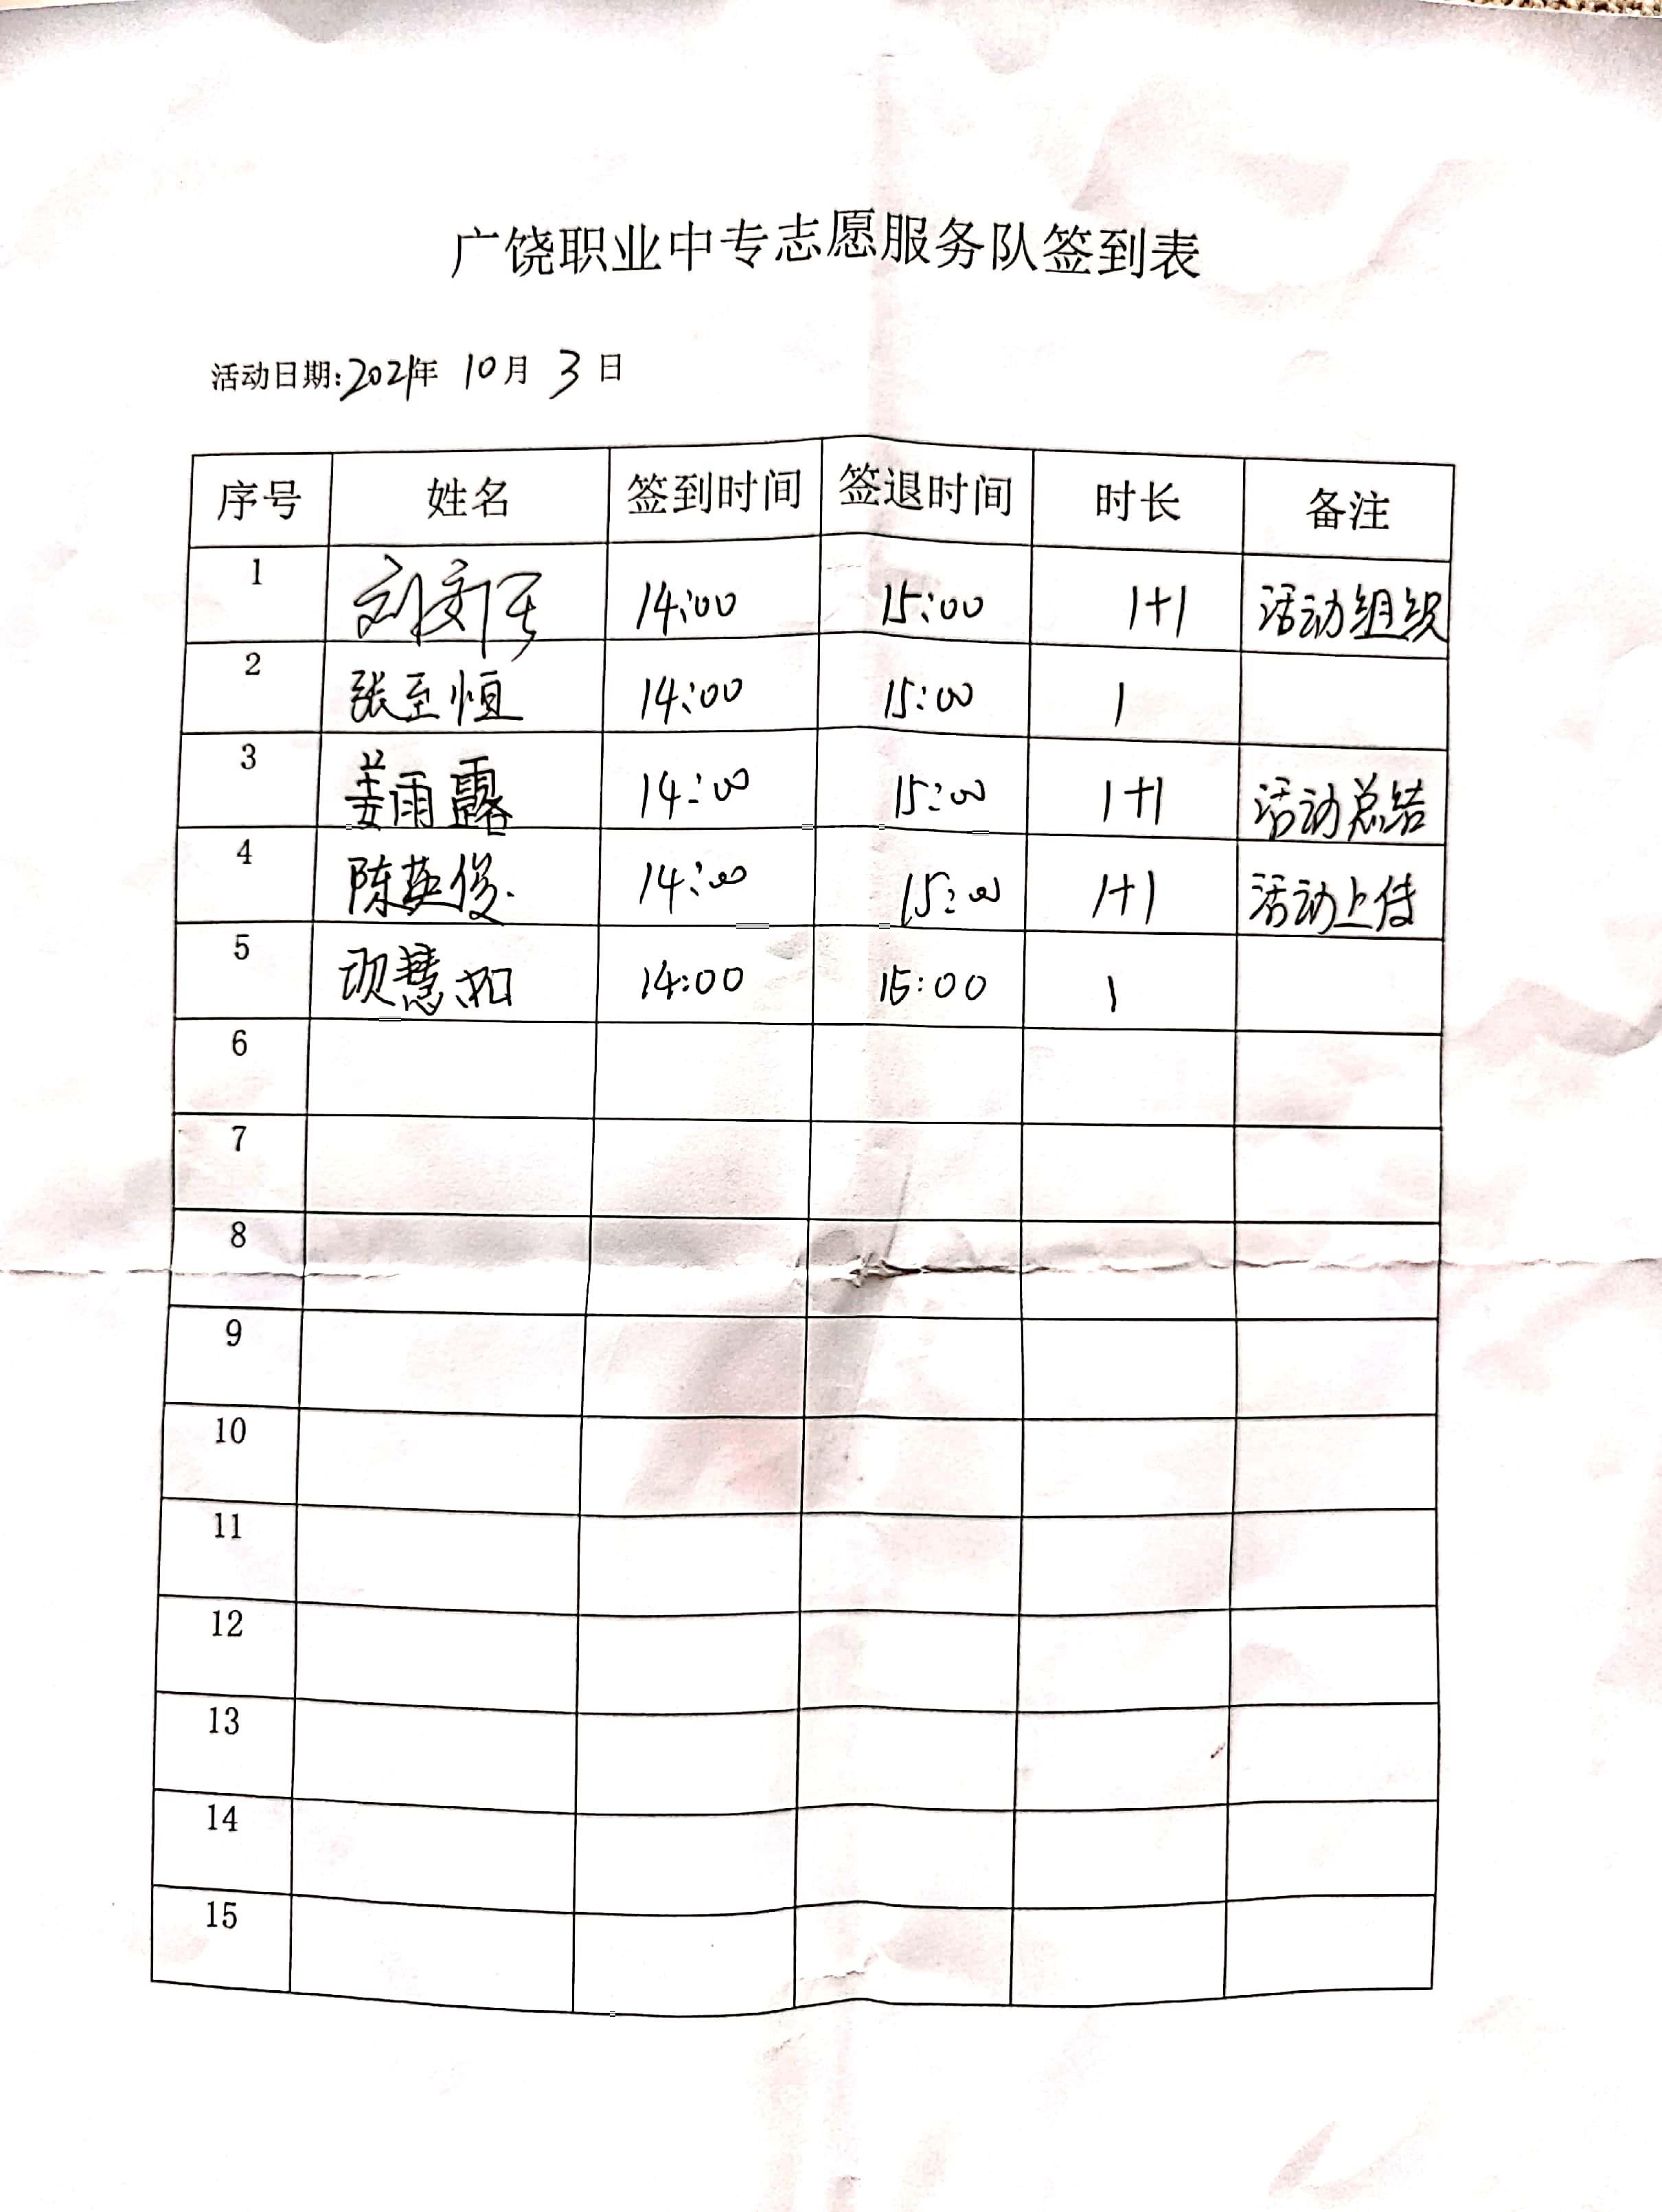 广饶职业中专志愿服务队签到表
活动日期:2021年 10月 3日
序号 姓名 签到时间 签退时间 时长 备注
1 刘 14:00 15:00 1+1 活动组织
2 张至恒 14:00 15:00 1
3 姜雨露 14:00 15:00 1+1 活动总结
4 陈英俊 14:00 15:00 1+1 活动上传
5 慧如 14:00 15:00 1
6
7
8
9
10
11
12
13
14
15